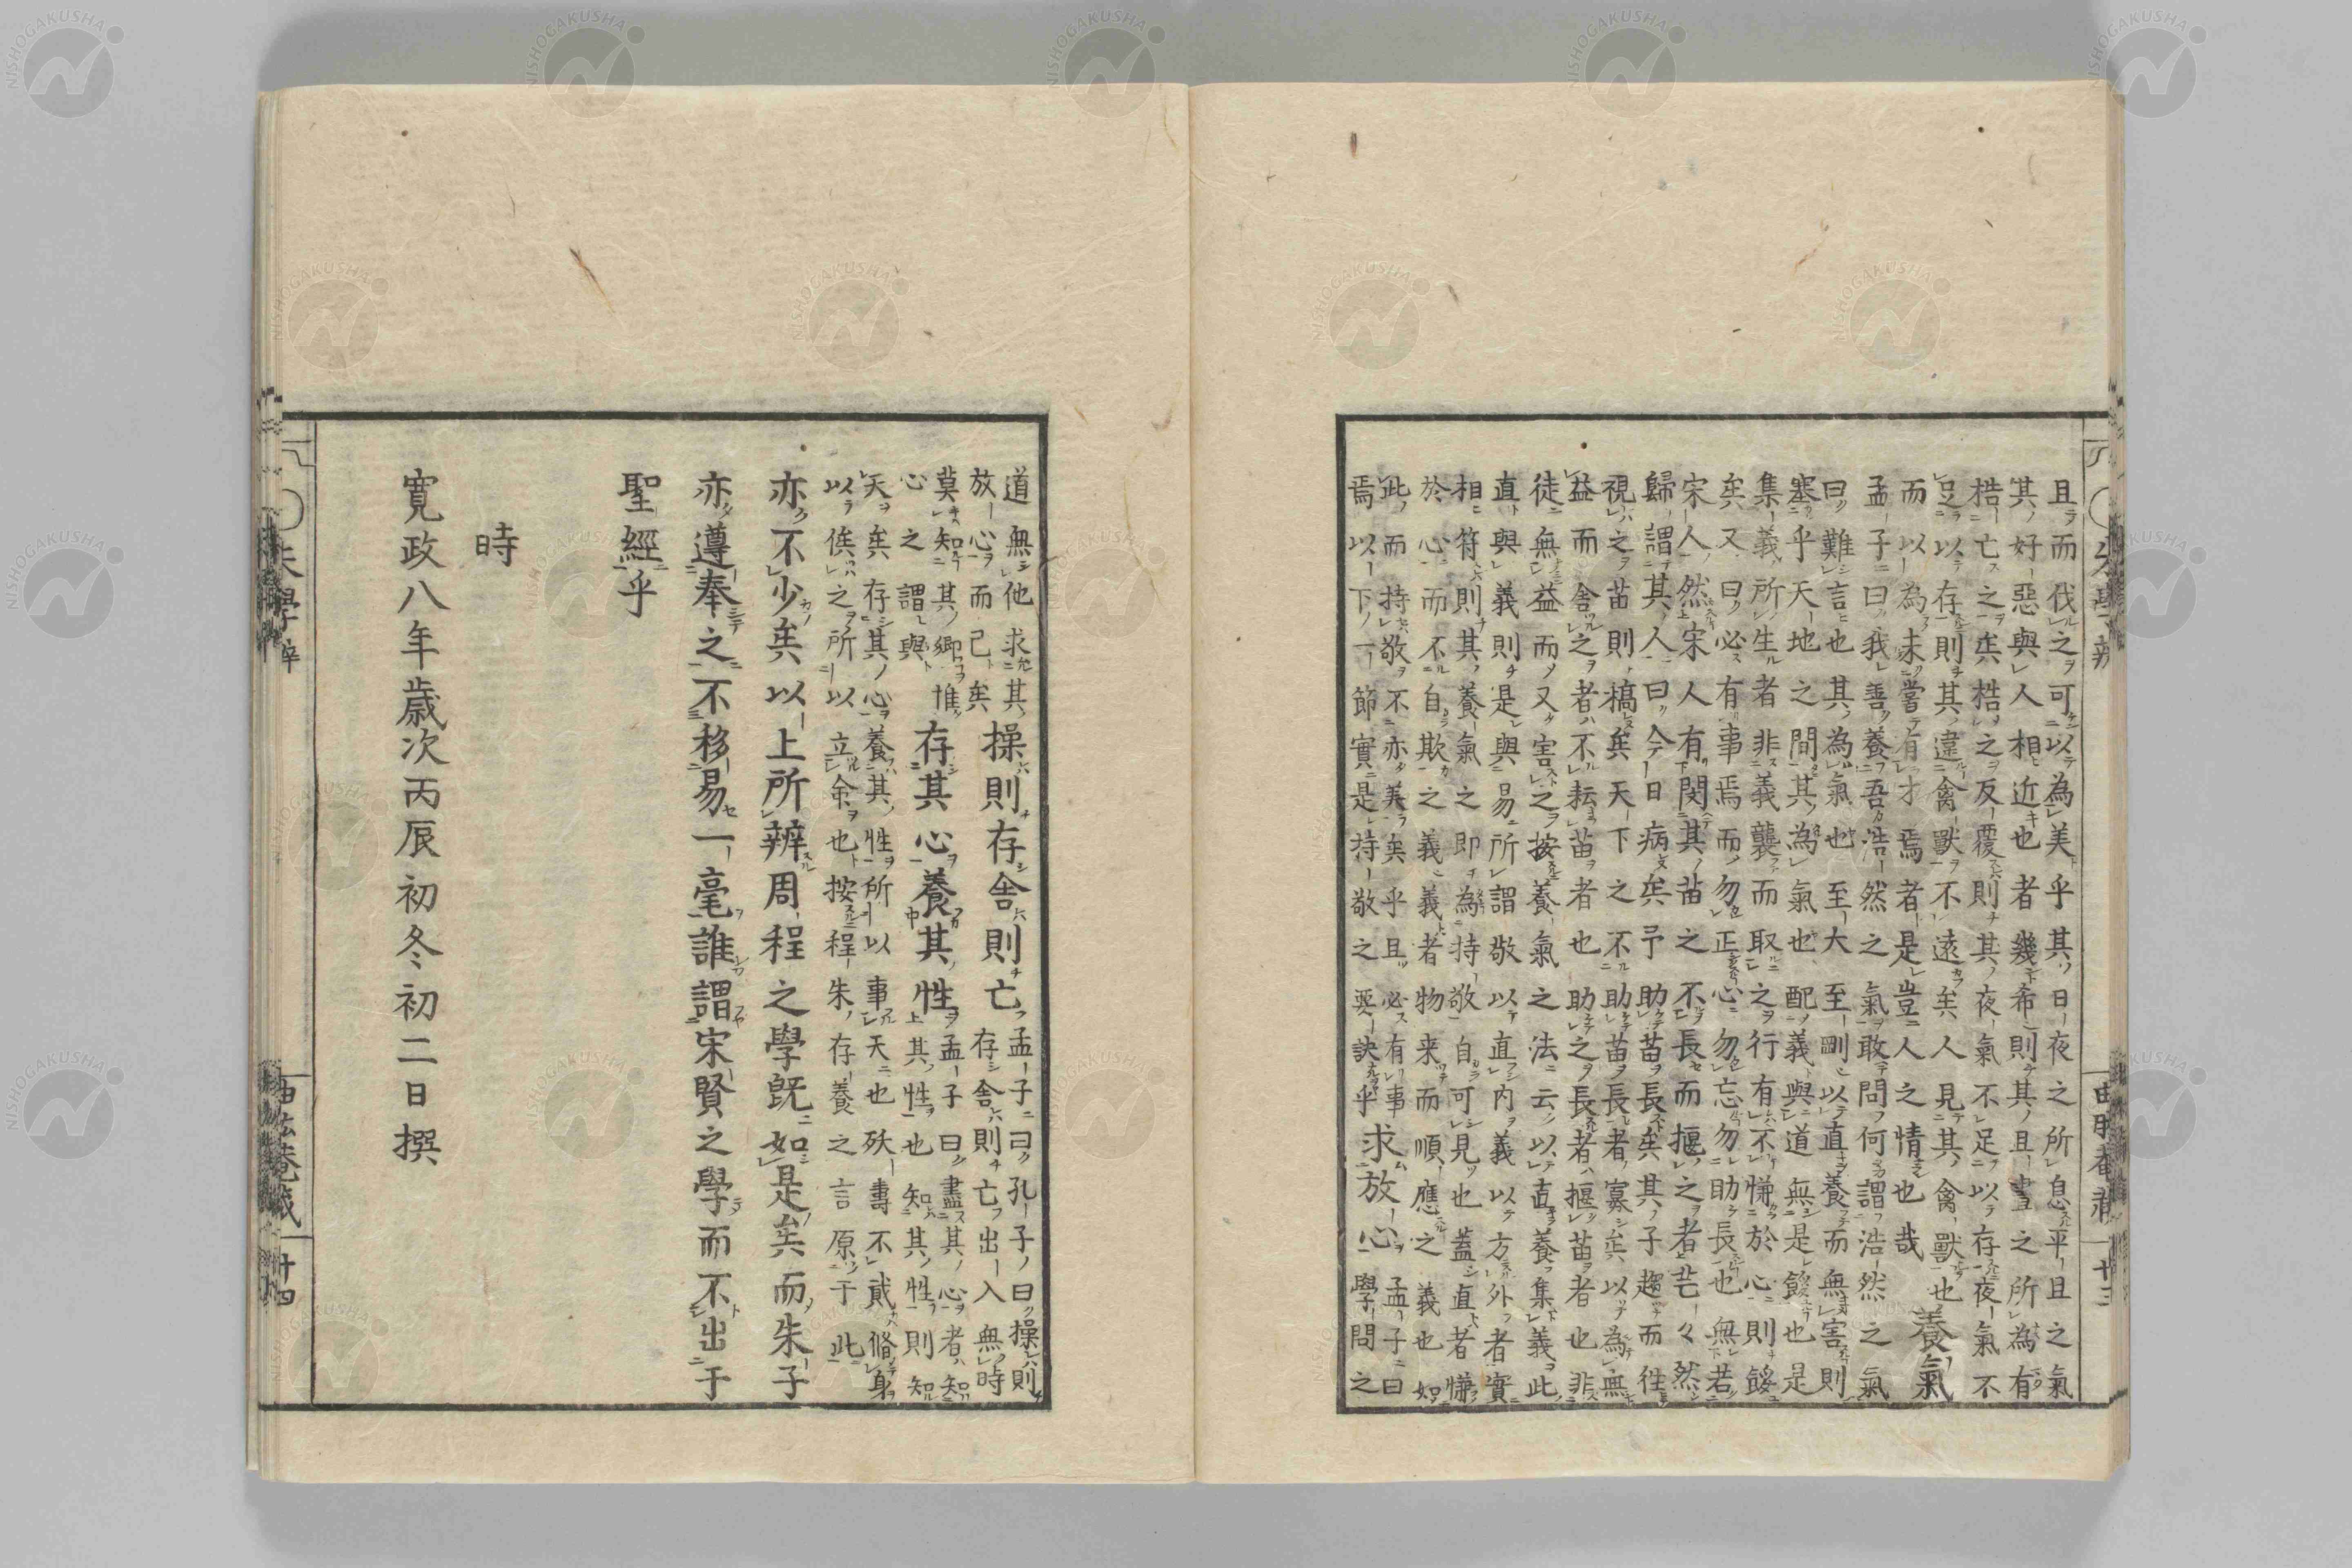 且而伐之可以為美乎其日夜之所息平且之氣
其好惡與人相近也者幾希則其且晝之所為有
梏亡之矣梏之反覆則其夜氣不足以存夜氣不
足以存則其違禽獸不遠矣人見其禽獸也
而以為未嘗有才焉者是豈人之情也哉 養氣
孟子曰我善養吾浩然之氣敢問何謂浩然之氣
曰難言也其為氣也至大至剛以直養而無害則
塞乎天地之間其為氣也配義與道無是餒也是
集義所生者非義襲而取之行有不慊於心則餒
矣又曰必有事焉而勿正心勿忘勿助長也無若
宋人然宋人有閔其苗之不長而揠之者芒々然
歸謂其人曰今日病矣予助苗長矣其子趨而往
視之苗則槁矣天下之不助苗長者寡矣以為無
益而舍之者不耘苗者也助之長者揠苗者也非
徒無益而又害之按養氣之法云以直養集義此
直與義則是與易所謂敬以直內義以方外者實
相符則其養氣之即為持敬自可見也蓋直者慊
於心而不自欺之義義者物来而順應之義也如
此而持敬不亦美矣乎且必有事 求放心 孟子曰
焉以下一節實是持敬之要訣乎 學問之
道無他求其
放心而已矣 操則存舍則亡 孟子曰孔子曰操則
存舍則亡出入無時
莫知其鄉惟
心之謂與 存其心養其性 孟子曰盡其心者知
其性也知其性則知
天矣存其心養其性所以事天也殀壽不貳脩身
以俟之所以立命也按程朱存養之言原于此
亦不少矣以上所辨周程之學既如是矣而朱子
亦遵奉之不移易一毫誰謂宋賢之學而不出于
聖經乎
時
寛政八年歳次丙辰初冬初二日撰